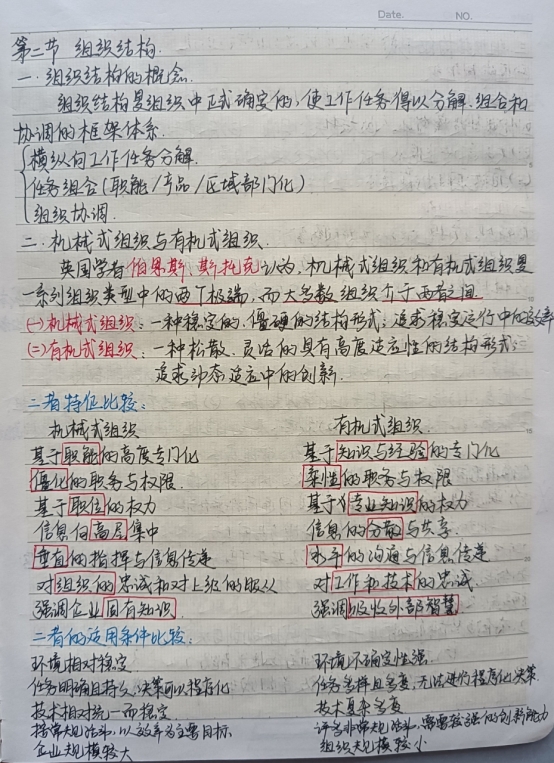 Date. NO.
第二节 组织结构.
一.组织结构的概念.
组织结构是组织中正式确定的,使工作任务得以分解.组合和
协调的框架体系.
横纵向工作任务分解.
任务组合(职能/产品/区域部门化)
组织协调.
二.机械式组织与有机式组织.
英国学者伯恩斯、斯托克认为,机械式组织和有机式组织是
一系列组织类型中的两个极端,而大多数组织介于两者之间
(一)机械式组织:一种稳定的、僵硬的结构形式;追求稳定运行中的效率
(二)有机式组织:一种松散、灵活的具有高度适应性的结构形式;
追求动态适应中的创新.
二者特征比较:
机械式组织 有机式组织.
基于职能的高度专门化 基于知识与经验的专门化
僵化的职务与权限 柔性的职务与权限
基于职位的权力 基于专业知识的权力
信息向高层集中 信息的分散与共享.
垂直的指挥与信息传递 水平的沟通与信息传递
对组织的忠诚和对上级的服从 对工作和技术的忠诚
强调企业固有知识. 强调吸收外部智慧
二者的适用条件比较:
环境相对稳定 环境不确定性强.
任务明确且持久,决策可以程序化 任务多样且多变,无法进行程序化决策
技术相对统一而稳定 技术复杂多变
按常规活动,以效率为主要目标 许多非常规活动,需要较强的创新能力
企业规模较大 组织规模较小